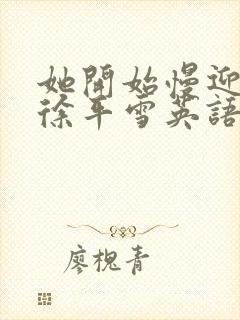 她開始慢迎
徐平雪英語
廖槐青